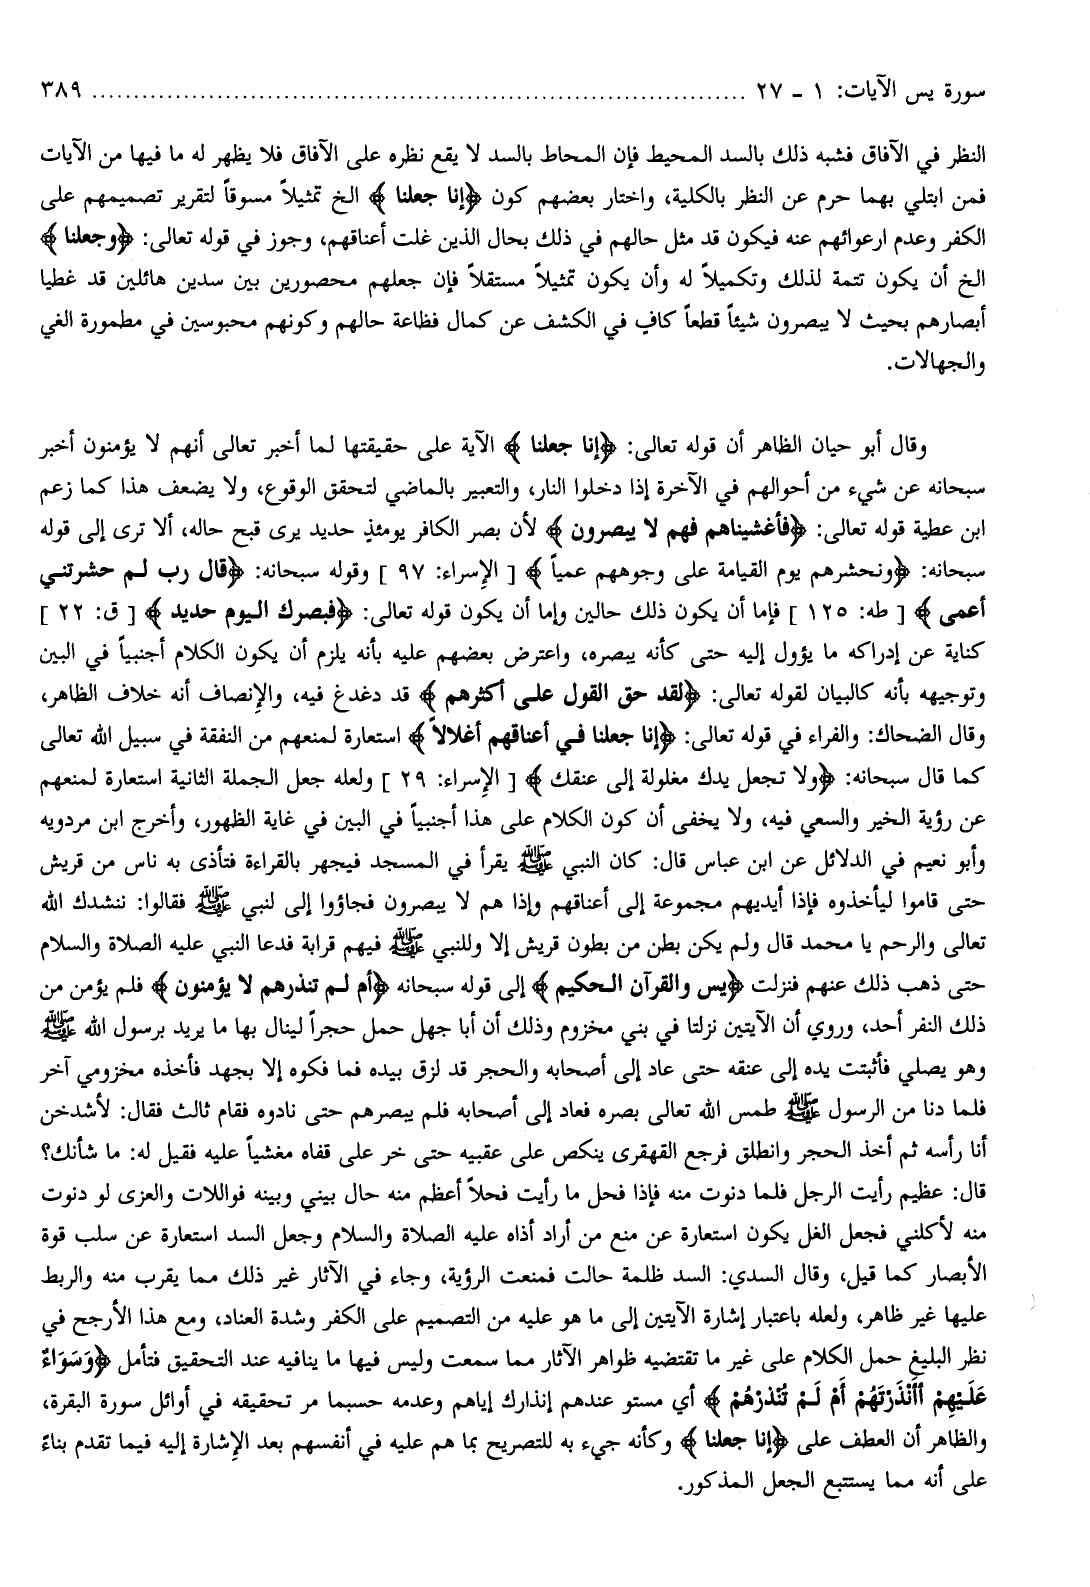 سورة يس الآيات: ١ - ٢٧ ........................................................................ ٣٨٩
النظر في الآفاق فشبه ذلك بالسد المحيط فإن المحاط بالسد لا يقع نظره على الآفاق فلا يظهر له ما فيها من الآيات
فمن ابتلي بهما حرم عن النظر بالكلية، واختار بعضهم كون ﴿إنا جعلنا﴾ الخ تمثيلاً مسوقاً لتقرير تصميمهم على
الكفر وعدم ارعوائهم عنه فيكون قد مثل حالهم في ذلك بحال الذين غلت أعناقهم، وجوز في قوله تعالى: ﴿وجعلنا﴾
الخ أن يكون تتمة لذلك وتكميلاً له وأن يكون تمثيلاً مستقلاً فإن جعلهم محصورين بين سدين هائلين قد غطيا
أبصارهم بحيث لا يبصرون شيئاً قطعاً كافٍ في الكشف عن كمال فظاعة حالهم وكونهم محبوسين في مطمورة الغي
والجهالات.
وقال أبو حيان الظاهر أن قوله تعالى: ﴿إنا جعلنا﴾ الآية على حقيقتها لما أخبر تعالى أنهم لا يؤمنون أخبر
سبحانه عن شيء من أحوالهم في الآخرة إذا دخلوا النار، والتعبير بالماضي لتحقق الوقوع، ولا يضعف هذا كما زعم
ابن عطية قوله تعالى: ﴿فأغشيناهم فهم لا يبصرون﴾ لأن بصر الكافر يومئذٍ حديد يرى قبح حاله، ألا ترى إلى قوله
سبحانه: ﴿ونحشرهم يوم القيامة على وجوههم عمياً﴾ [ الإسراء: ٩٧ ] وقوله سبحانه: ﴿قال رب لم حشرتني
أعمى﴾ [ طه: ١٢٥ ] فإما أن يكون ذلك حالين وإما أن يكون قوله تعالى: ﴿فبصرك اليوم حديد﴾ [ ق: ٢٢ ]
كناية عن إدراكه ما يؤول إليه حتى كأنه يبصره، واعترض بعضهم عليه بأنه يلزم أن يكون الكلام أجنبياً في البين
وتوجيهه بأنه كالبيان لقوله تعالى: ﴿لقد حق القول على أكثرهم﴾ قد دغدغ فيه، والإنصاف أنه خلاف الظاهر،
وقال الضحاك: والفراء في قوله تعالى: ﴿إنا جعلنا في أعناقهم أغلالاً﴾ استعارة لمنعهم من النفقة في سبيل الله تعالى
كما قال سبحانه: ﴿ولا تجعل يدك مغلولة إلى عنقك﴾ [ الإسراء: ٢٩ ] ولعله جعل الجملة الثانية استعارة لمنعهم
عن رؤية الخير والسعي فيه، ولا يخفى أن كون الكلام على هذا أجنبياً في البين في غاية الظهور، وأخرج ابن مردويه
وأبو نعيم في الدلائل عن ابن عباس قال: كان النبي ﷺ يقرأ في المسجد فيجهر بالقراءة فتأذى به ناس من قريش
حتى قاموا ليأخذوه فإذا أيديهم مجموعة إلى أعناقهم وإذا هم لا يبصرون فجاؤوا إلى لنبي ﷺ فقالوا: ننشدك الله
تعالى والرحم يا محمد قال ولم يكن بطن من بطون قريش إلا وللنبي ﷺ فيهم قرابة فدعا النبي عليه الصلاة والسلام
حتى ذهب ذلك عنهم فنزلت ﴿يس والقرآن الحكيم﴾ إلى قوله سبحانه ﴿أم لم تنذرهم لا يؤمنون﴾ فلم يؤمن من
ذلك النفر أحد، وروي أن الآيتين نزلتا في بني مخزوم وذلك أن أبا جهل حمل حجراً لينال بها ما يريد برسول الله ﷺ
وهو يصلي فأثبتت يده إلى عنقه حتى عاد إلى أصحابه والحجر قد لزق بيده فما فكوه إلا بجهد فأخذه مخزومي آخر
فلما دنا من الرسول ﷺ طمس الله تعالى بصره فعاد إلى أصحابه فلم يبصرهم حتى نادوه فقام ثالث فقال: لأشدخن
أنا رأسه ثم أخذ الحجر وانطلق فرجع القهقرى ينكص على عقبيه حتى خر على قفاه مغشياً عليه فقيل له: ما شأنك؟
قال: عظيم رأيت الرجل فلما دنوت منه فإذا فحل ما رأيت فحلاً أعظم منه حال بيني وبينه فواللات والعزى لو دنوت
منه لأكلني فجعل الغل يكون استعارة عن منع من أراد أذاه عليه الصلاة والسلام وجعل السد استعارة عن سلب قوة
الأبصار كما قيل، وقال السدي: السد ظلمة حالت فمنعت الرؤية، وجاء في الآثار غير ذلك مما يقرب منه والربط
عليها غير ظاهر، ولعله باعتبار إشارة الآيتين إلى ما هو عليه من التصميم على الكفر وشدة العناد، ومع هذا الأرجح في
نظر البليغ حمل الكلام على غير ما تقتضيه ظواهر الآثار مما سمعت وليس فيها ما ينافيه عند التحقيق فتأمل ﴿وَسَوَاءٌ
عَلَيْهِمْ أَأَنْذَرْتَهُمْ أَمْ لَمْ تُنْذِرْهُمْ﴾ أي مستو عندهم إنذارك إياهم وعدمه حسبما مر تحقيقه في أوائل سورة البقرة،
والظاهر أن العطف على ﴿إنا جعلنا﴾ وكأنه جيء به للتصريح بما هم عليه في أنفسهم بعد الإشارة إليه فيما تقدم بناءً
على أنه مما يستتبع الجعل المذكور.